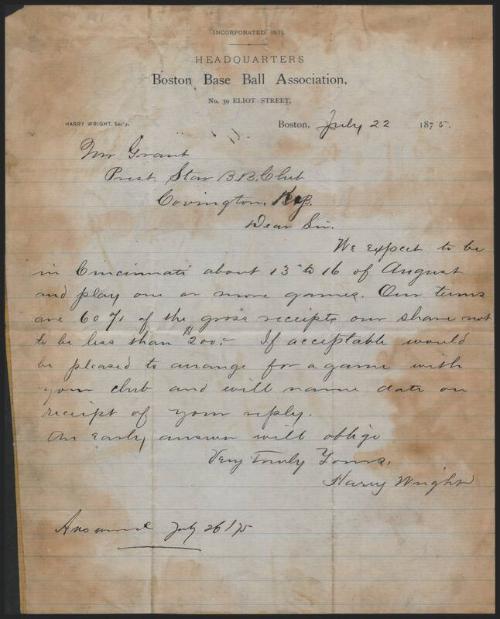 INCORPORATED 1871.
HEADQUARTERS
Boston Base Ball Association,
No. 39 ELIOT STREET,
HARRY WRIGHT, Sec'y.
Boston, July 22 1875.
Mr Grant
Prest. Star B.B. Club
Covington, Ky.
Dear Sir.
We expect to be
in Cincinnati about 13 to 16 of August
and play one or more games. Our terms
are 60 % of the gross receipts our share not
to be less than $200.- If acceptable would
be pleased to arrange for a game with
your club and will name date on
receipt of your reply.
An Early answer will oblige
Very Truly Yours,
Harry Wright
Answered July 26/75